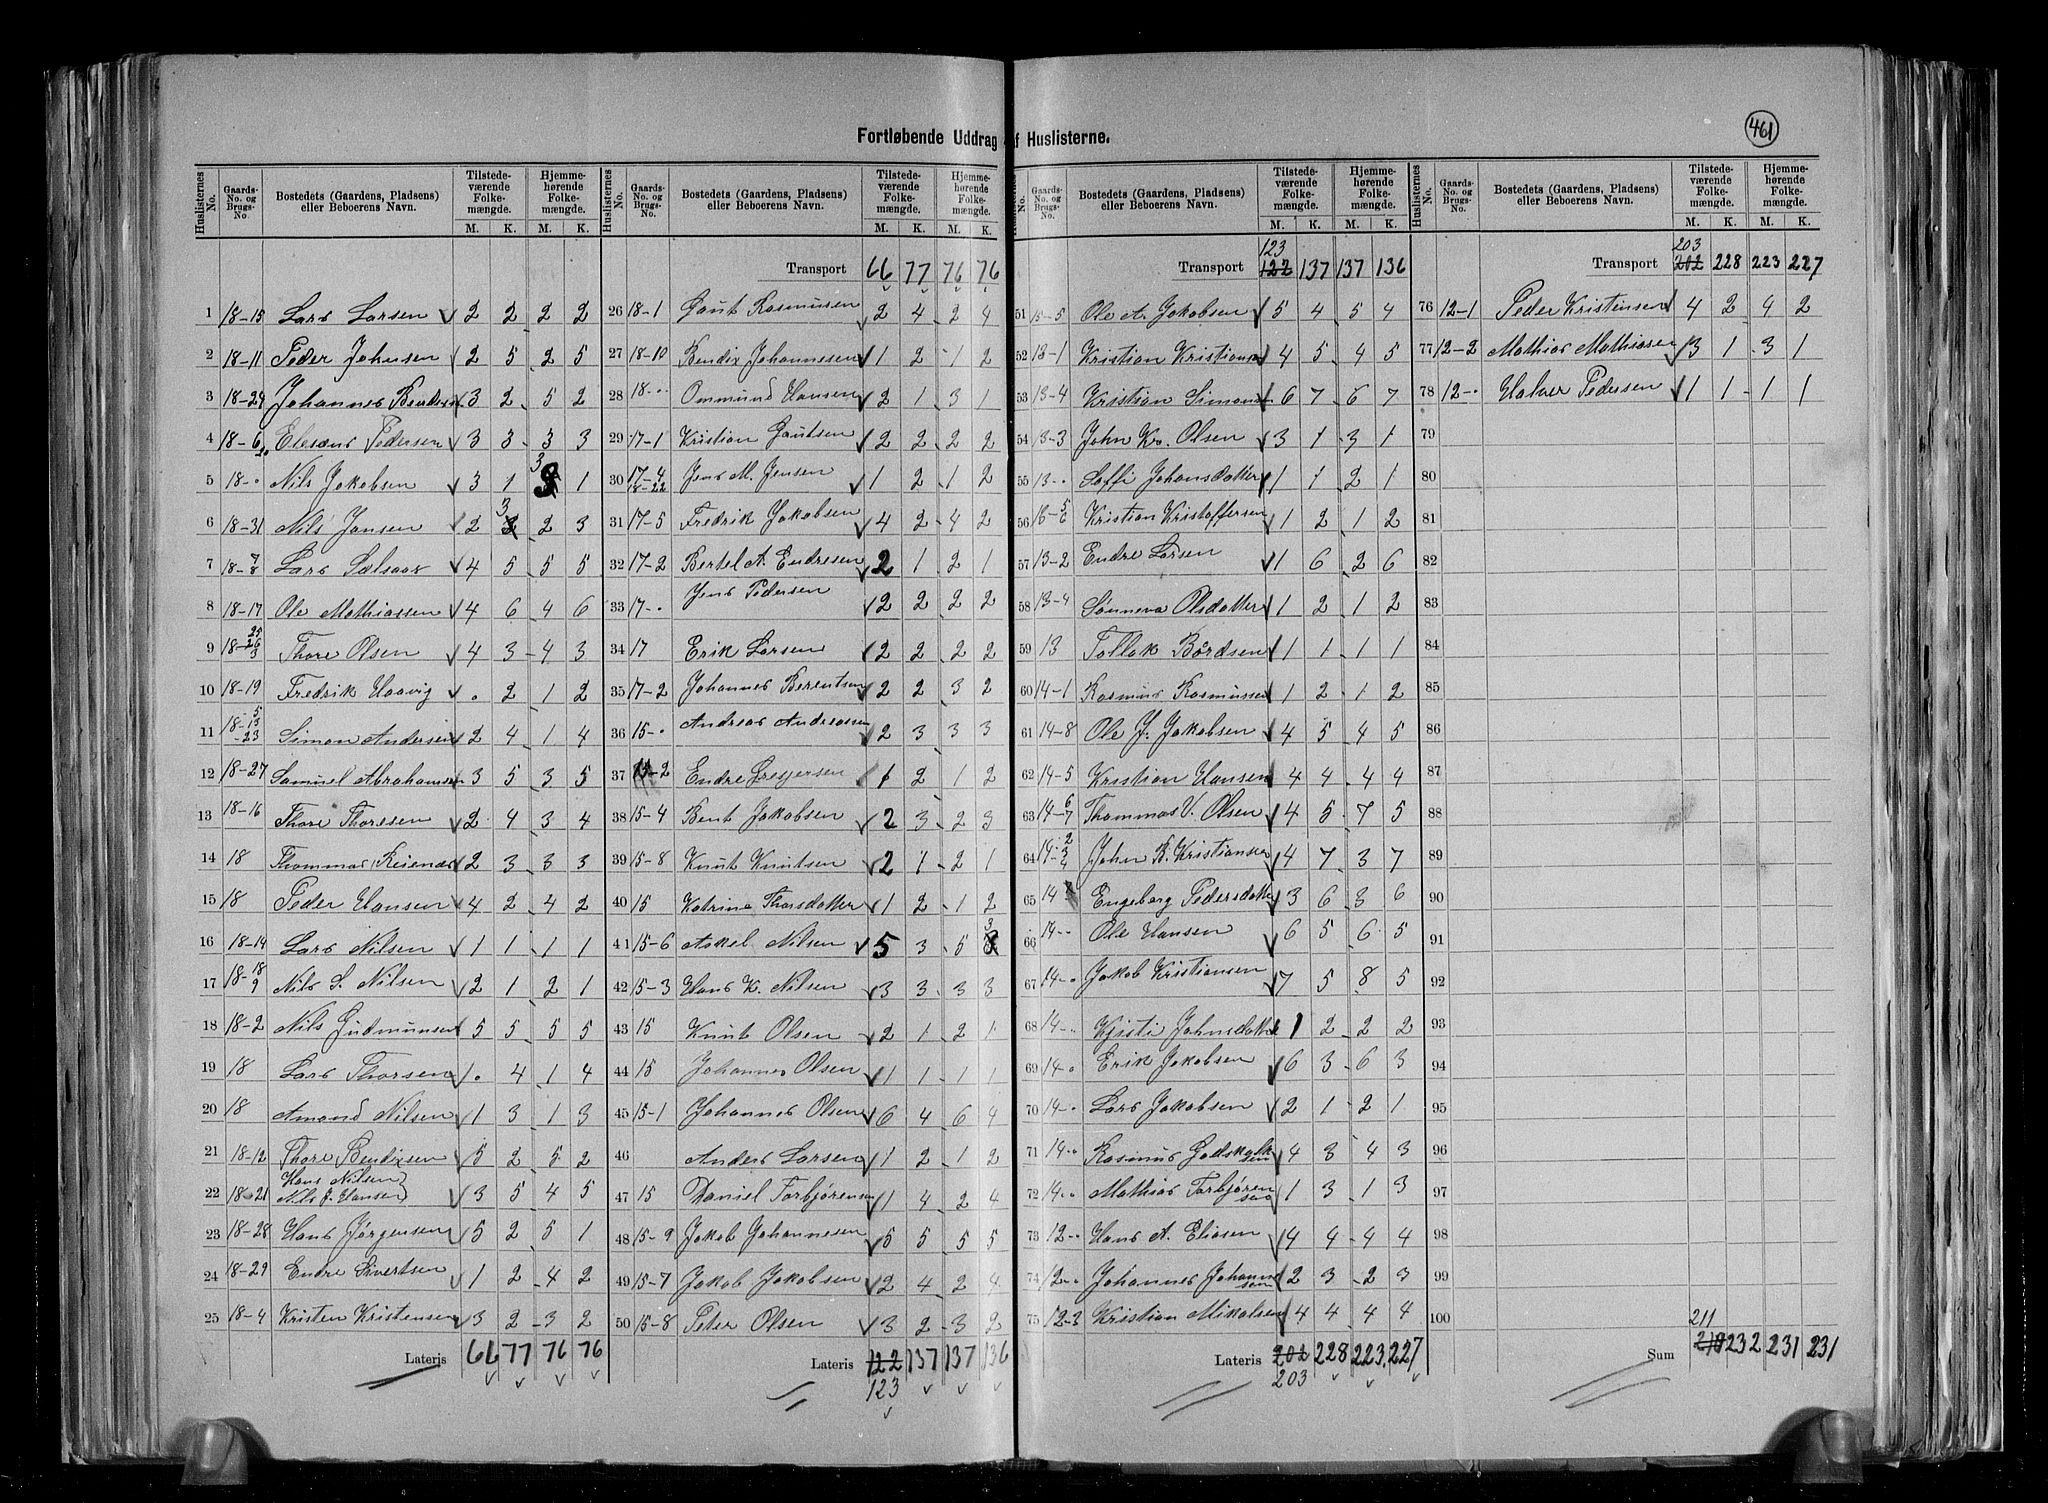 461
Fortløbende Uddrag af Huslisterne.
Huslisternes No. Gaards-No. og Brugs-No. Bostedets (Gaardens, Pladsens) eller Beboerens Navn. Tilstedeværende Folkemængde. M. K. Hjemmehørende Folkemængde. M. K.
1 18-15 Lars Larsen 2 2 2 2
2 18-11 Peder Johnsen 2 5 2 5
3 18-24 Johannes Bendixen 3 2 5 2
4 18-6 Elesæus Pedersen 3 3 3 3
5 18-" Nils Jakobsen 3 1 3 1
6 18-31 Nils Jansen 2 3 2 3
7 18-7 8 Lars 4 5 5 5
8 18-17 Ole Mathiassen 4 6 4 6
9 18-25 26 3 Thore Olsen 4 3 4 3
10 18-19 Fredrik Haavig . 2 1 2
11 18-5 13 23 Simon Andersen 2 4 1 4
12 18-27 Samuel Abrahamsen 3 5 3 5
13 18-16 Thore Thoresen 2 4 3 4
14 18 Thommas 2 3 3 3
15 18 Peder Hansen 4 2 4 2
16 18-14 Lars Nilsen 1 1 1 1
17 18-18 9 Nils S. Nilsen 2 1 2 1
18 18-2 Nils Gudmunsen 5 5 5 5
19 18 Lars Thorsen . 4 1 4
20 18 Amond Nilsen 1 3 1 3
21 18-12 Thore Bendixsen 5 2 5 2
22 18-21 Hans Nilsen Nils J. Hansen 3 5 4 5
23 18-28 Hans Jørgensen 5 2 5 1
24 18-29 Endre Sivertsen 1 2 4 2
25 18-4 Kristen Kristensen 3 2 3 2
Lateris 66 77 76 76
Huslisternes No. Gaards-No. og Brugs-No. Bostedets (Gaardens, Pladsens) eller Beboerens Navn. Tilstedeværende Folkemængde. M. K. Hjemmehørende Folkemængde. M. K.
Transport 66 77 76 76
26 18-1 Gaut Rasmusen 2 4 2 4
27 18-10 Bendix Johannesen 1 2 1 2
28 18-" Ommund Hansen 2 1 3 1
29 17-1 Kristian Gautsen 2 2 2 2
30 17-4 18-22 Jens M. Jensen 1 2 1 2
31 17-5 Fredrik Jakobsen 4 2 4 2
32 17-2 Bertel A. Endresen 2 1 2 1
33 17-" Jens Pedersen 2 2 2 2
34 17 Erik Larsen 2 2 2 2
35 17-2 Johannes Berentsen 2 2 3 2
36 15-" Andreas Andreassen 2 3 3 3
37 15-2 Endre Gregersen 1 2 1 2
38 15-4 Bent Jakobsen 2 3 2 3
39 15-8 Knut Knutsen 2 1 2 1
40 15 Katrina Thorsdatter 1 2 1 2
41 15-6 Askel Nilsen 5 3 5 3
42 15-3 Hans K. Nilsen 3 3 3 3
43 15 Knut Olsen 2 1 2 1
44 15 Johannes Olsen 1 1 1 1
45 15-1 Johannes Olsen 6 4 6 4
46 Anders Larsen 1 2 1 2
47 15 Daniel Torbjørensen 1 4 2 4
48 15-9 Jakob Johannesen 5 5 5 5
49 15-7 Jakob Jakobsen 2 4 2 4
50 15-8 Peter Olsen 3 2 3 2
Lateris 122 137 137 136
123
No. Gaards-No. og Brugs-No. Bostedets (Gaardens, Pladsens) eller Beboerens Navn. Tilstedeværende Folkemængde. M. K. Hjemmehørende Folkemængde. M. K.
123
Transport 122 137 137 136
51 15-5 Ole A. Jakobsen 5 4 5 4
52 13-1 Kristian Kristiansen 4 5 4 5
53 13-4 Kristian Simonsen 6 7 6 7
54 13-3 John Kr. Olsen 3 1 3 1
55 13-" Soffi Johansdatter 1 1 2 1
56 16-5 6 Kristian Kristoffersen 1 2 1 2
57 13-2 Endre Larsen 1 6 2 6
58 13-4 Sønneva Olsdatter 1 2 1 2
59 13 Tollak Bårdsen 1 1 1 1
60 14-1 Rasmus Rasmussen 1 2 1 2
61 14-8 Ole J. Jakobsen 4 5 4 5
62 14-5 Kristian Hansen 4 4 4 4
63 14-6 7 Thommas V. Olsen 4 5 7 5
64 14-2 3 4 John B. Kristiansen 4 7 3 7
65 14 Engeborg Pedersdatter 3 6 3 6
66 14-" Ole Hansen 6 5 6 5
67 14-" Jakob Kristiansen 7 5 8 5
68 14-" Kjisti Johnsdatter 1 2 2 2
69 14-" Erik Jakobsen 6 3 6 3
70 14-" Lars Jakobsen 2 1 2 1
71 14-" Rasmus Godskalksen 4 3 4 3
72 14-" Mathias Torbjørensen 1 3 1 3
73 12-" Hans A. Eliasen 4 4 4 4
74 12-" Johannes Johannesen 2 3 2 3
75 12-3 Kristian Mikalsen 4 4 4 4
Lateris 202 228 223 227
203
Huslisternes No. Gaards-No. og Brugs-No. Bostedets (Gaardens, Pladsens) eller Beboerens Navn. Tilstedeværende Folkemængde. M. K. Hjemmehørende Folkemængde. M. K.
203
Transport 202 228 223 227
76 12-1 Peder Kristensen 4 2 4 2
77 12-2 Mathias Mathiasen 3 1 3 1
78 12-" Halver Pedersen 1 1 1 1
79
80
81
82
83
84
85
86
87
88
89
90
91
92
93
94
95
96
97
98
99
100
211
Sum 210 232 231 231